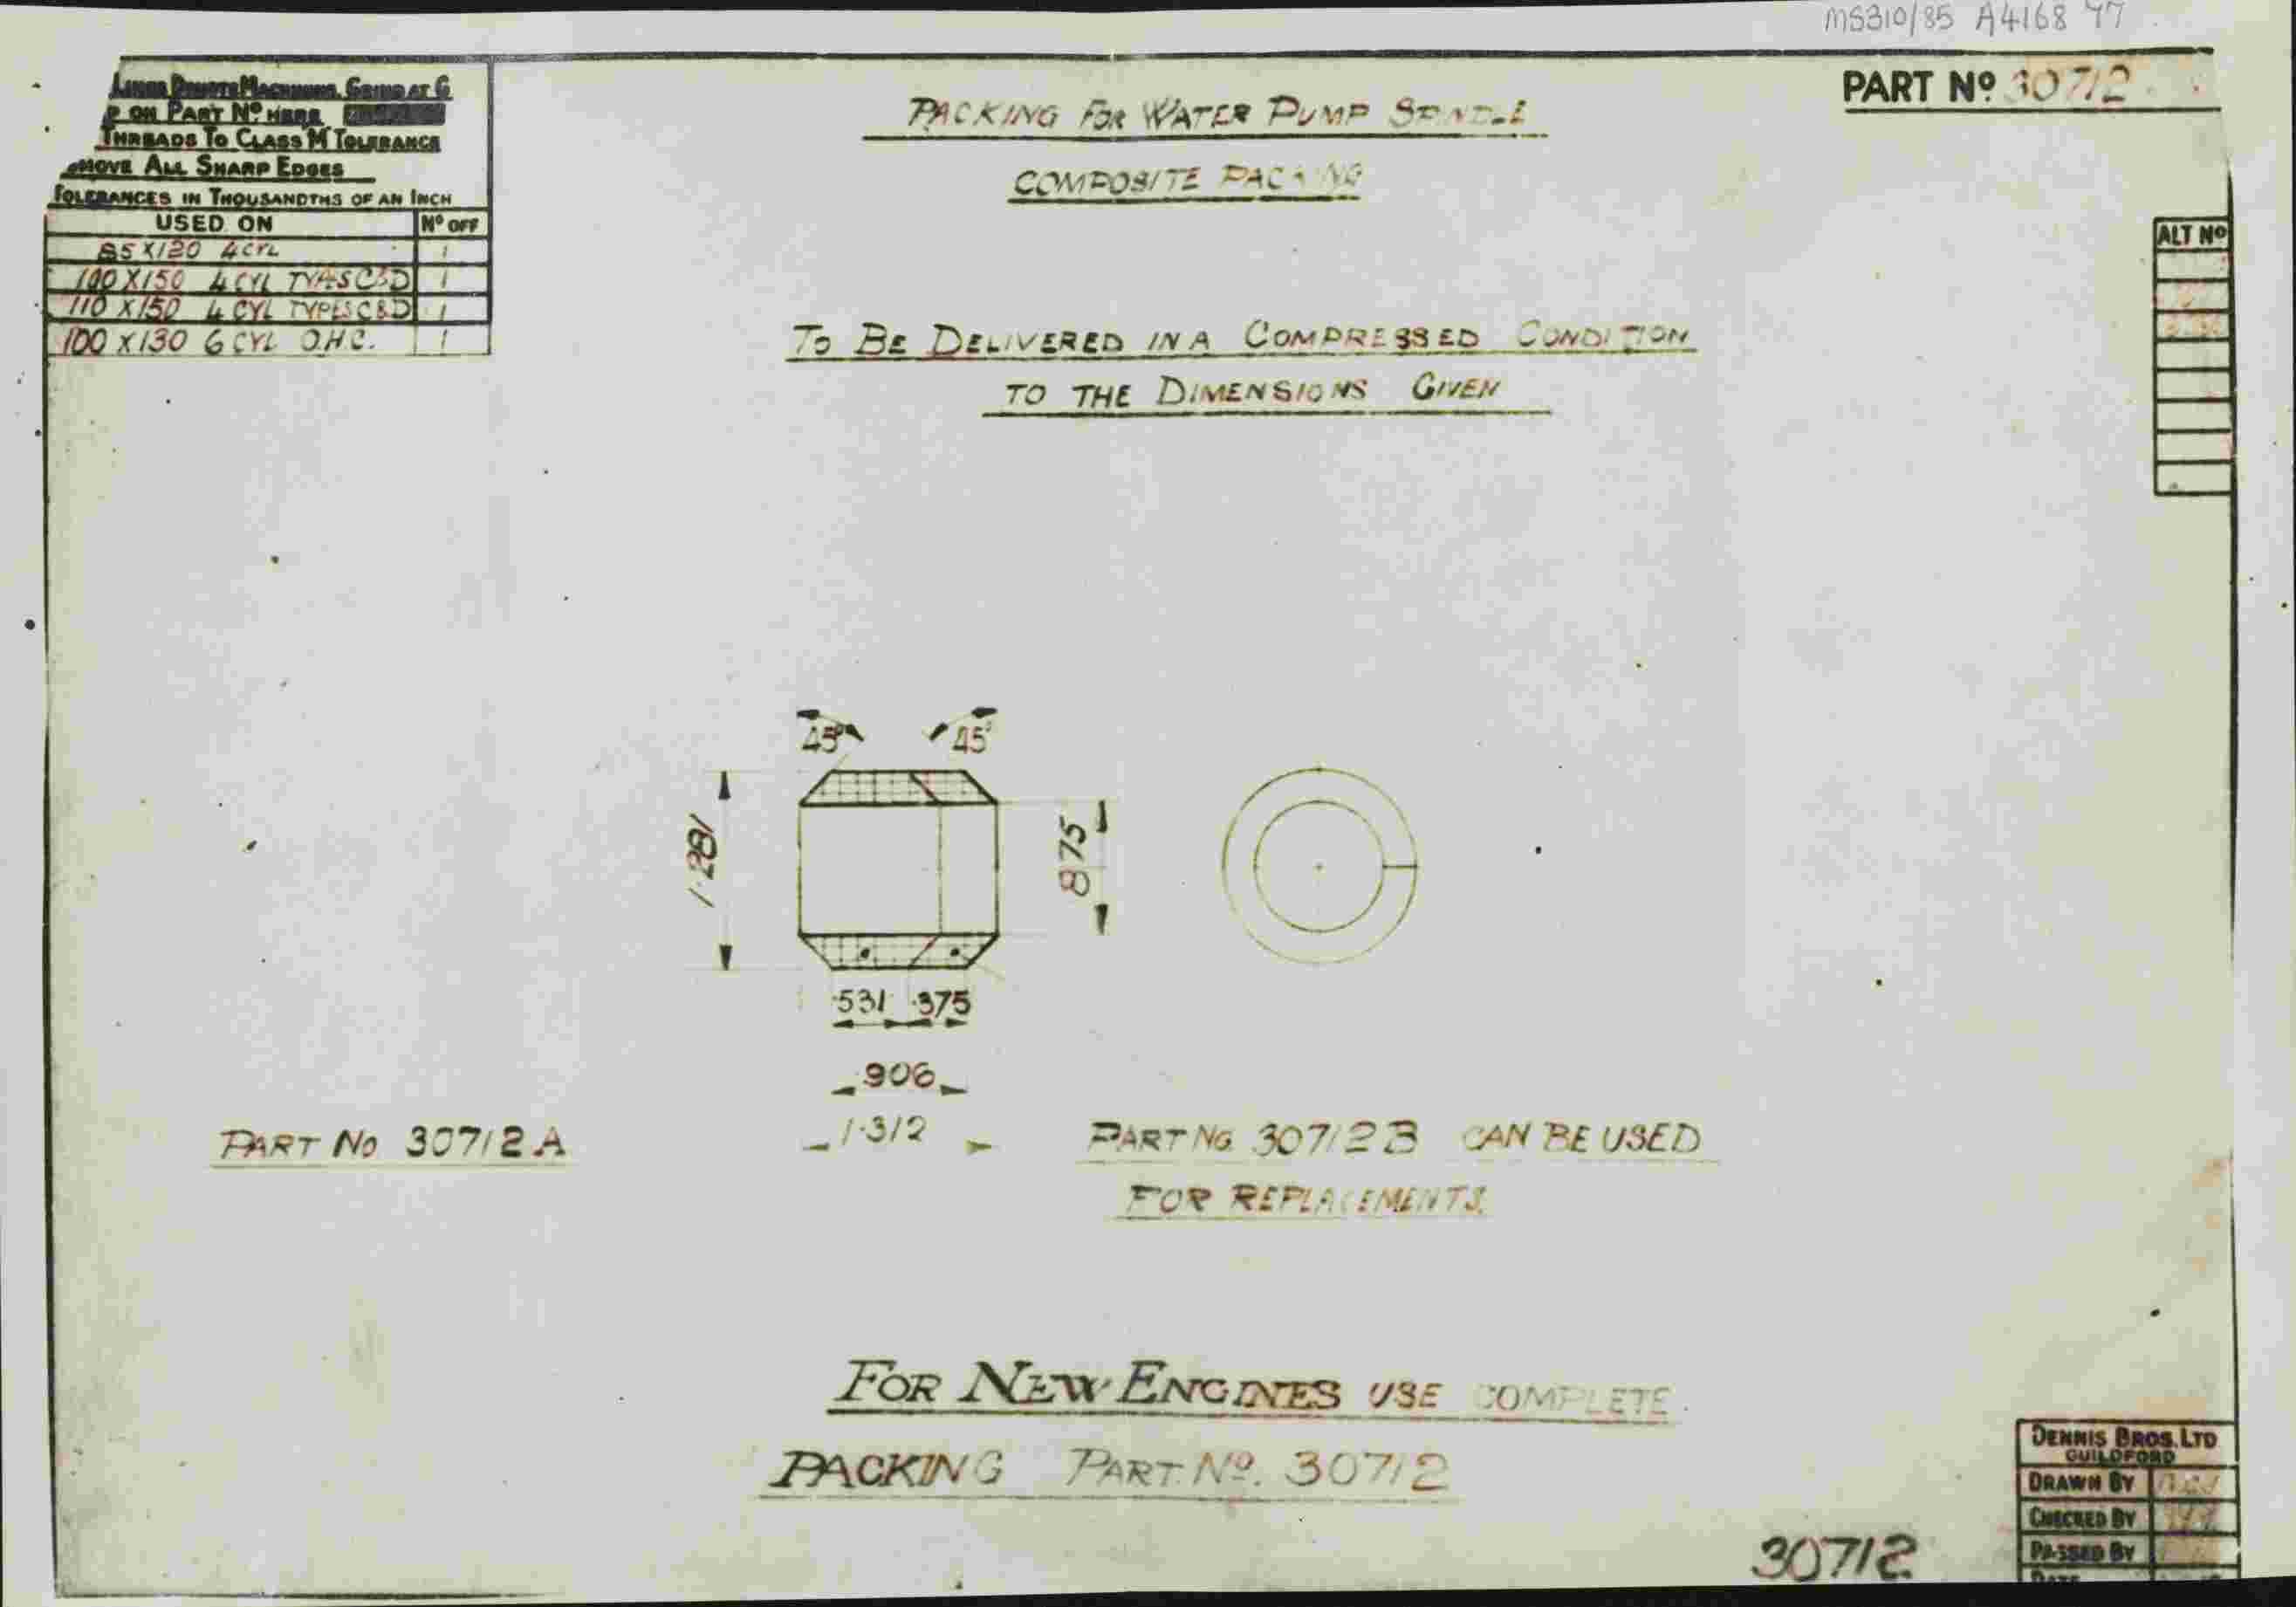 MS310/85 A4168 47
PART Nº 30712
THREADS TO CLASS "M" TOLERANCE
ALL SHARP EDGES
TOLERANCES IN THOUSANDTHS OF AN INCH
USED ON Nº OFF
85 X 120 4 CYL 1
100 X 150 4 CYL TYPES C&D 1
110 X 150 4 CYL TYPES C&D 1
100 X 130 6 CYL O.H.C. 1
PACKING FOR WATER PUMP SPINDLE
COMPOSITE PACKING
ALT Nº
TO BE DELIVERED IN A COMPRESSED CONDITION
TO THE DIMENSIONS GIVEN
45° 45°
1·281
875
·531 ·375
·906
1·312
PART NO 30712 A
PART NO 30712 B CAN BE USED
FOR REPLACEMENTS.
FOR NEW ENGINES USE COMPLETE
PACKING PART. Nº. 30712
30712
DENNIS BROS. LTD
GUILDFORD
DRAWN BY
CHECKED BY
PASSED BY
DATE